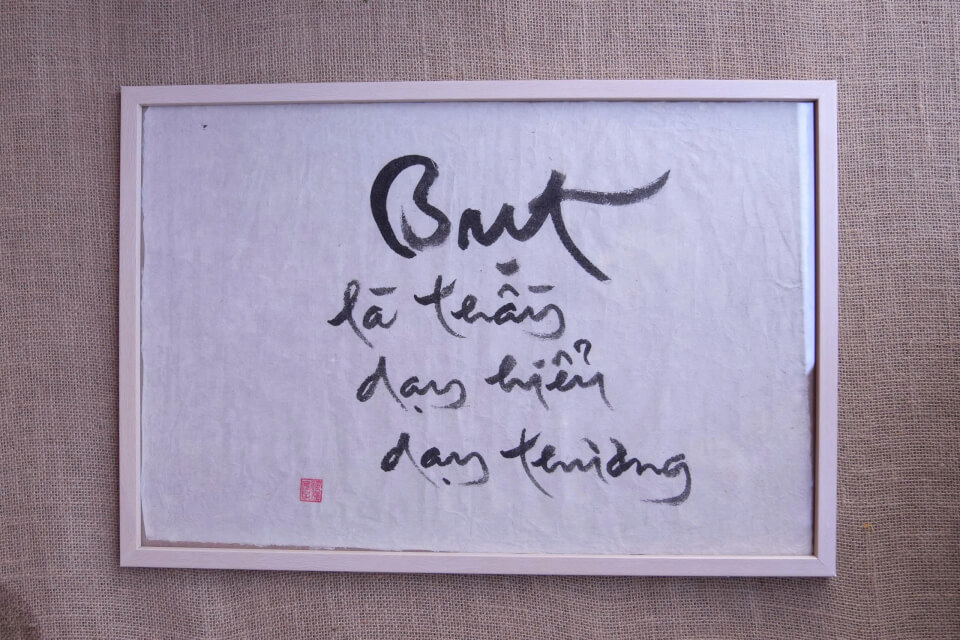 Bụt
là thầy
dạy hiểu
dạy thương